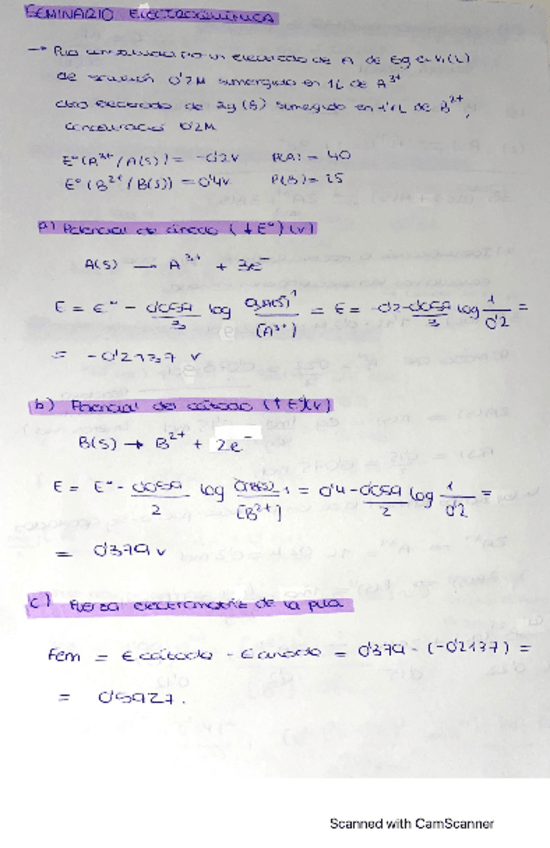 SEMINARIO ELECTROQUÍMICA
→ Pila construida un electrodo de A de 8g en V1(L)
de disolución 0'2M sumergido en 1L de A³⁺
otro electrodo de 2g (S) sumergido en 1'1L de B²⁺,
concentración 0'2M
E°(A³⁺/A(S)) = -0'2V P(A) = 40
E°(B²⁺/B(S)) = 0'4V P(B) = 25
a) Potencial de ánodo (↓E°)(V)
A(S) → A³⁺ + 3e⁻
E = E° - 0'059/3 log a(A(S))¹/[A³⁺] = E = -0'2 - 0'059/3 log 1/0'2 =
= -0'2137 V
b) Potencial del cátodo (↑E°)(V)
B(S) → B²⁺ + 2e⁻
E = E° - 0'059/2 log a(B(S))¹/[B²⁺] = 0'4 - 0'059/2 log 1/0'2 =
= 0'379 V
c) Fuerza electromotriz de la pila
Fem = E cátodo - E ánodo = 0'379 - (-0'2137) =
= 0'5927.
Scanned with CamScanner